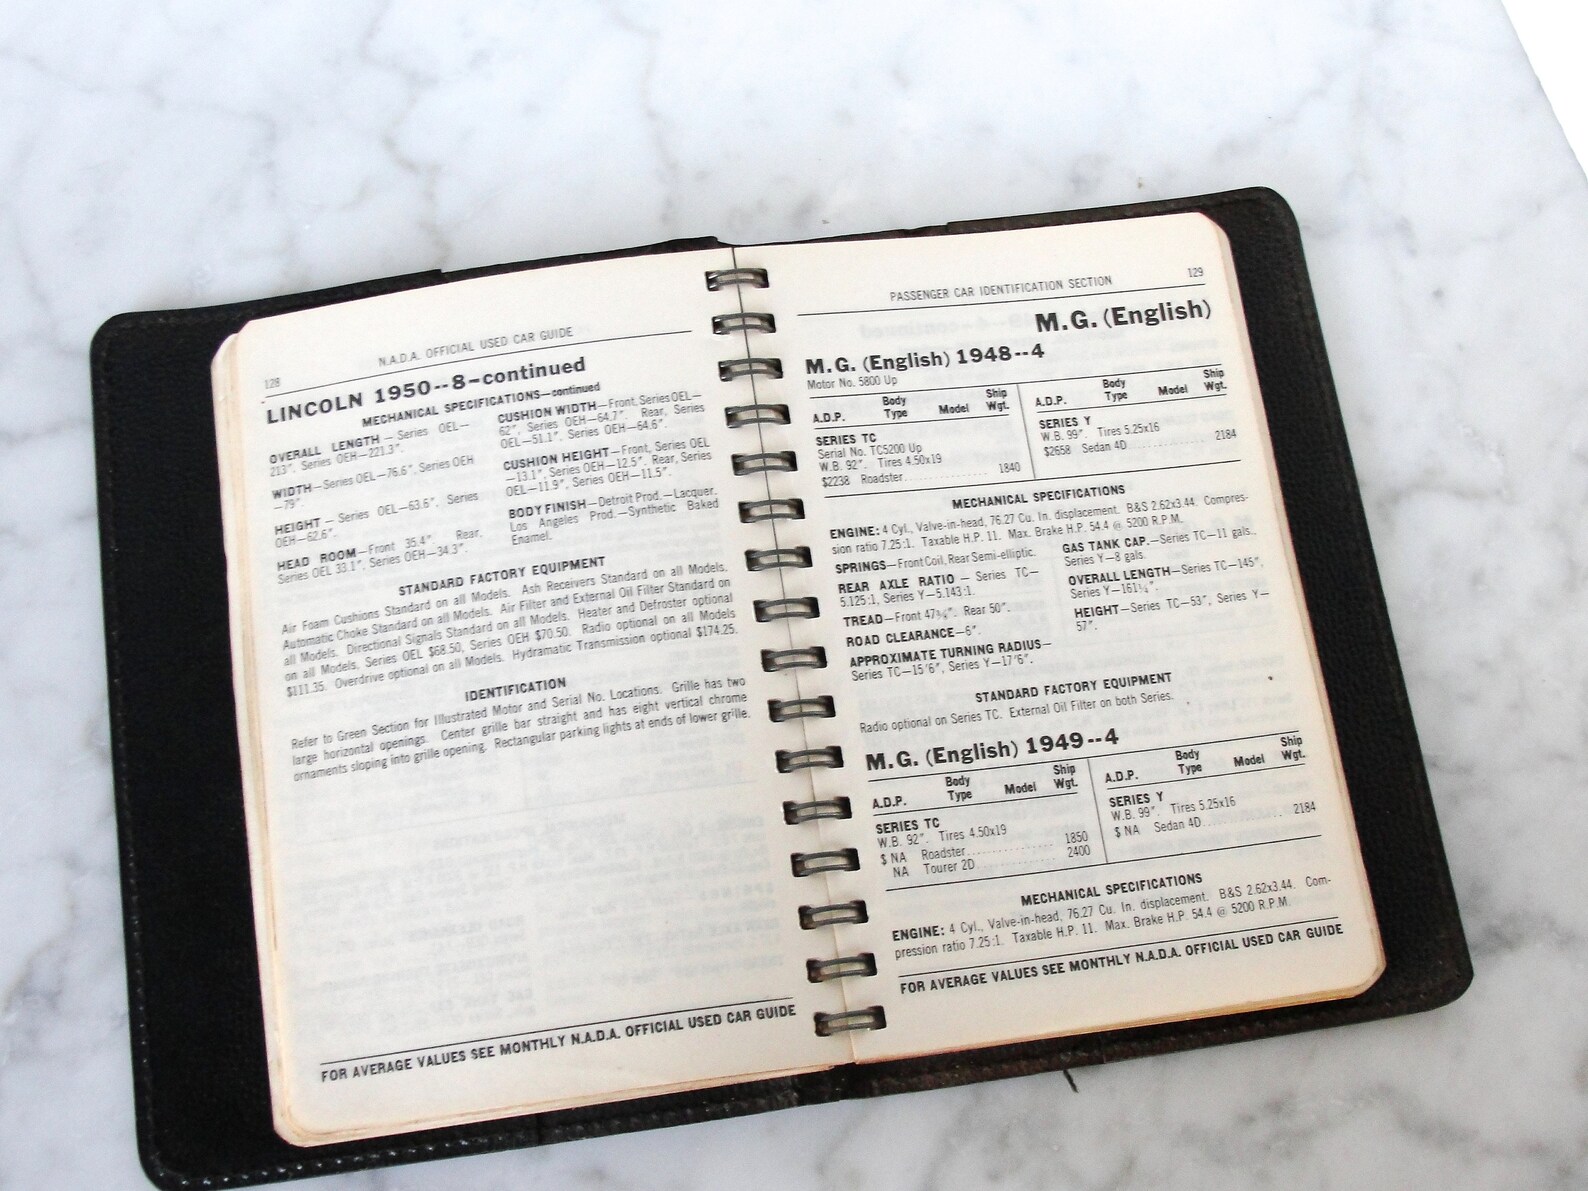 128
N.A.D.A. OFFICIAL USED CAR GUIDE
LINCOLN 1950--8-continued
MECHANICAL SPECIFICATIONS—continued
OVERALL LENGTH — Series OEL—
213". Series OEH—221.3".
WIDTH—Series OEL—76.6", Series OEH
—79".
HEIGHT — Series OEL—63.6", Series
OEH—62.6".
HEAD ROOM—Front 35.4". Rear,
Series OEL 33.1", Series OEH—34.3".
CUSHION WIDTH—Front, Series OEL—
62", Series OEH—64.7". Rear, Series
OEL—51.1", Series OEH—64.6".
CUSHION HEIGHT—Front, Series OEL
—13.1", Series OEH—12.5". Rear, Series
OEL—11.9", Series OEH—11.5".
BODY FINISH—Detroit Prod.—Lacquer.
Los Angeles Prod.—Synthetic Baked
Enamel.
STANDARD FACTORY EQUIPMENT
Air Foam Cushions Standard on all Models. Ash Receivers Standard on all Models.
Automatic Choke Standard on all Models. Air Filter and External Oil Filter Standard on
all Models. Directional Signals Standard on all Models. Heater and Defroster optional
on all Models, Series OEL $68.50, Series OEH $70.50. Radio optional on all Models
$111.35. Overdrive optional on all Models. Hydramatic Transmission optional $174.25.
IDENTIFICATION
Refer to Green Section for Illustrated Motor and Serial No. Locations. Grille has two
large horizontal openings. Center grille bar straight and has eight vertical chrome
ornaments sloping into grille opening. Rectangular parking lights at ends of lower grille.
FOR AVERAGE VALUES SEE MONTHLY N.A.D.A. OFFICIAL USED CAR GUIDE
PASSENGER CAR IDENTIFICATION SECTION
129
M.G. (English)
M.G. (English) 1948--4
Motor No. 5800 Up
A.D.P. Body Type Model Ship Wgt.
SERIES TC
Serial No. TC5200 Up
W.B. 92". Tires 4.50x19
$2238 Roadster 1840
A.D.P. Body Type Model Ship Wgt.
SERIES Y
W.B. 99". Tires 5.25x16
$2658 Sedan 4D 2184
MECHANICAL SPECIFICATIONS
ENGINE: 4 Cyl., Valve-in-head, 76.27 Cu. In. displacement. B&S 2.62x3.44. Compres-
sion ratio 7.25:1. Taxable H.P. 11. Max. Brake H.P. 54.4 @ 5200 R.P.M.
SPRINGS—Front Coil, Rear Semi-elliptic.
REAR AXLE RATIO — Series TC—
5.125:1, Series Y—5.143:1.
TREAD—Front 47¾". Rear 50".
ROAD CLEARANCE—6".
APPROXIMATE TURNING RADIUS—
Series TC—15'6", Series Y—17'6".
GAS TANK CAP.—Series TC—11 gals.,
Series Y—8 gals.
OVERALL LENGTH—Series TC—145",
Series Y—161½".
HEIGHT—Series TC—53", Series Y—
57".
STANDARD FACTORY EQUIPMENT
Radio optional on Series TC. External Oil Filter on both Series.
M.G. (English) 1949--4
A.D.P. Body Type Model Ship Wgt.
SERIES TC
W.B. 92". Tires 4.50x19
$ NA Roadster 1850
NA Tourer 2D 2400
A.D.P. Body Type Model Ship Wgt.
SERIES Y
W.B. 99". Tires 5.25x16
$ NA Sedan 4D 2184
MECHANICAL SPECIFICATIONS
ENGINE: 4 Cyl., Valve-in-head, 76.27 Cu. In. displacement. B&S 2.62x3.44. Com-
pression ratio 7.25:1. Taxable H.P. 11. Max. Brake H.P. 54.4 @ 5200 R.P.M.
FOR AVERAGE VALUES SEE MONTHLY N.A.D.A. OFFICIAL USED CAR GUIDE